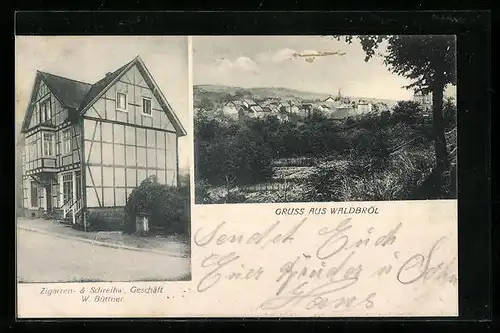 GRUSS AUS WALDBRÖL
Zigarren- & Schreibw. Geschäft
W. Büttner.
Sendet Euch
Euer Bruder u Sohn
Hans